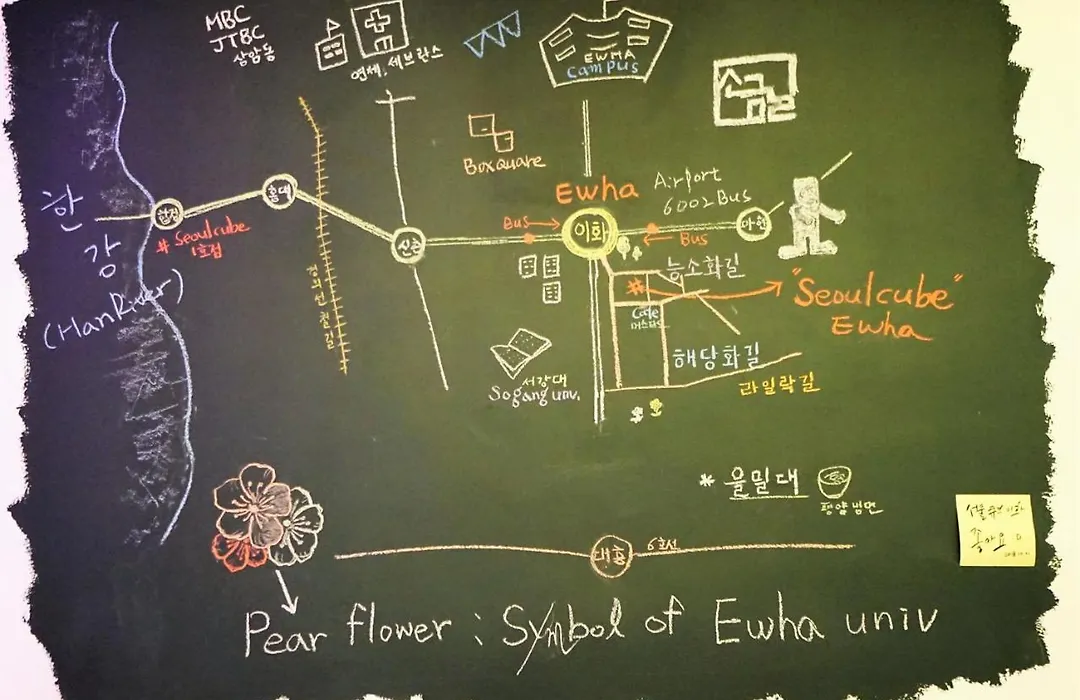 MBC
JTBC
삼암동
연세.세브란스
EWHA
campus
Boxquare
Ewha
Airport
6002 Bus
Bus
Bus
한
강
(HanRiver)
합정
홍대
신촌
이화
아현
# Seoulcube
1호점
경의선철길
능소화길
#
Cafe
"Seoulcube"
Ewha
해당화길
라일락길
서강대
Sogang univ.
* 을밀대
평양냉면
대흥
6호선
서울큐브이화
좋아요
Pear flower : Symbol of Ewha univ